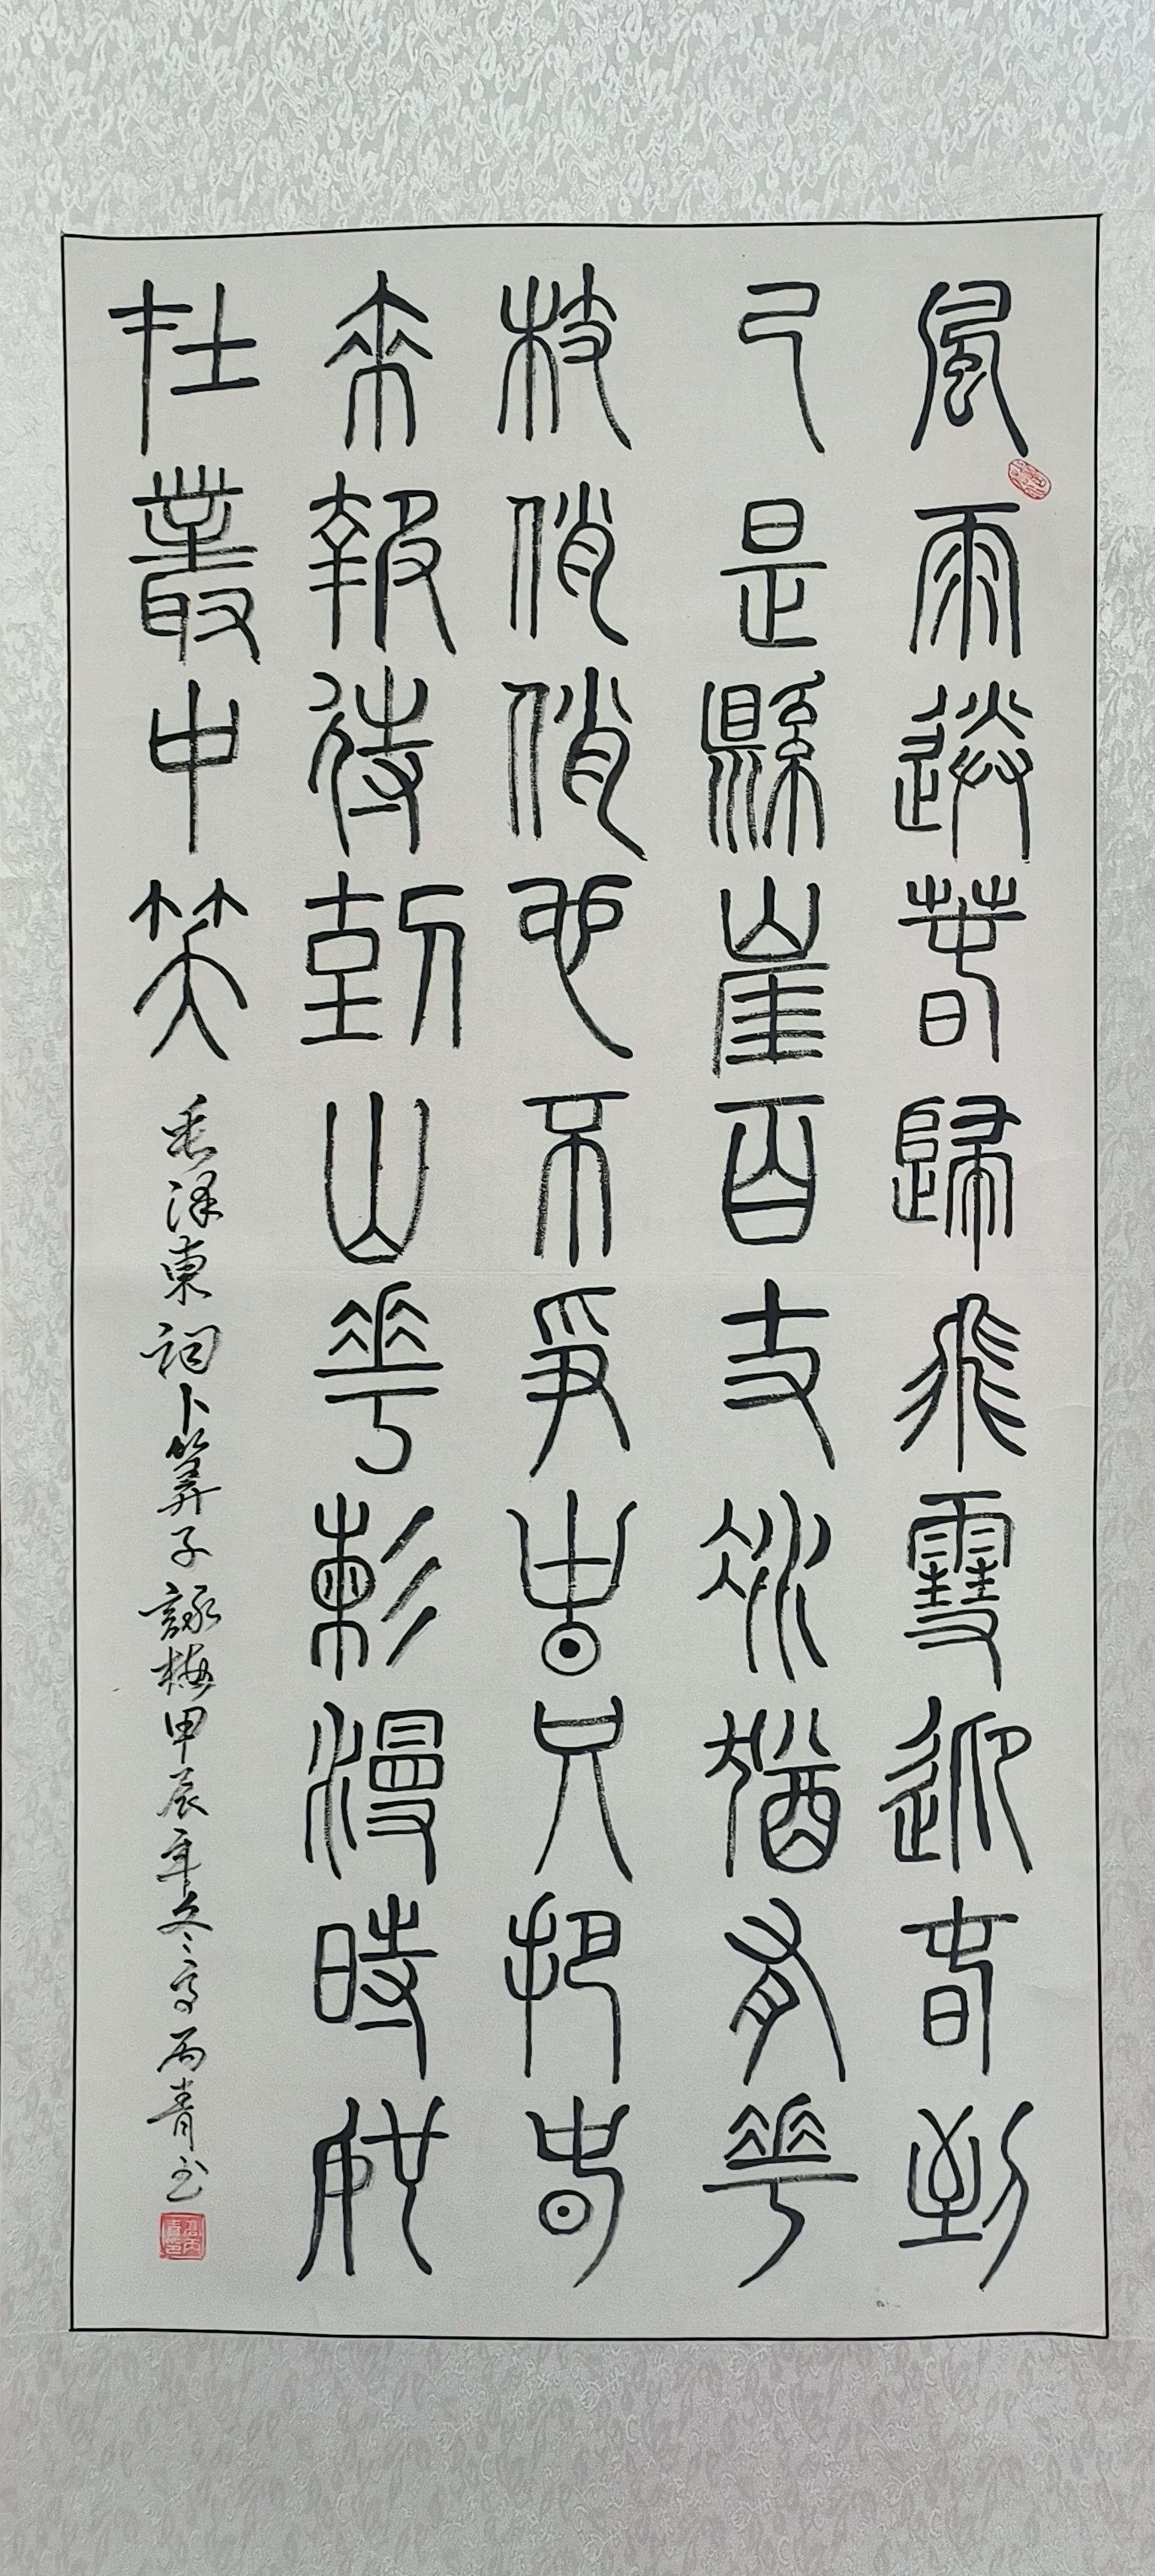 風雨送春歸飛雪迎春到
已是縣崖百丈冰猶有華
枝俏俏也不爭春只把春
來報待到山華爛漫時她
在叢中笑 毛澤東詞卜算子詠梅甲辰年冬高丙青书